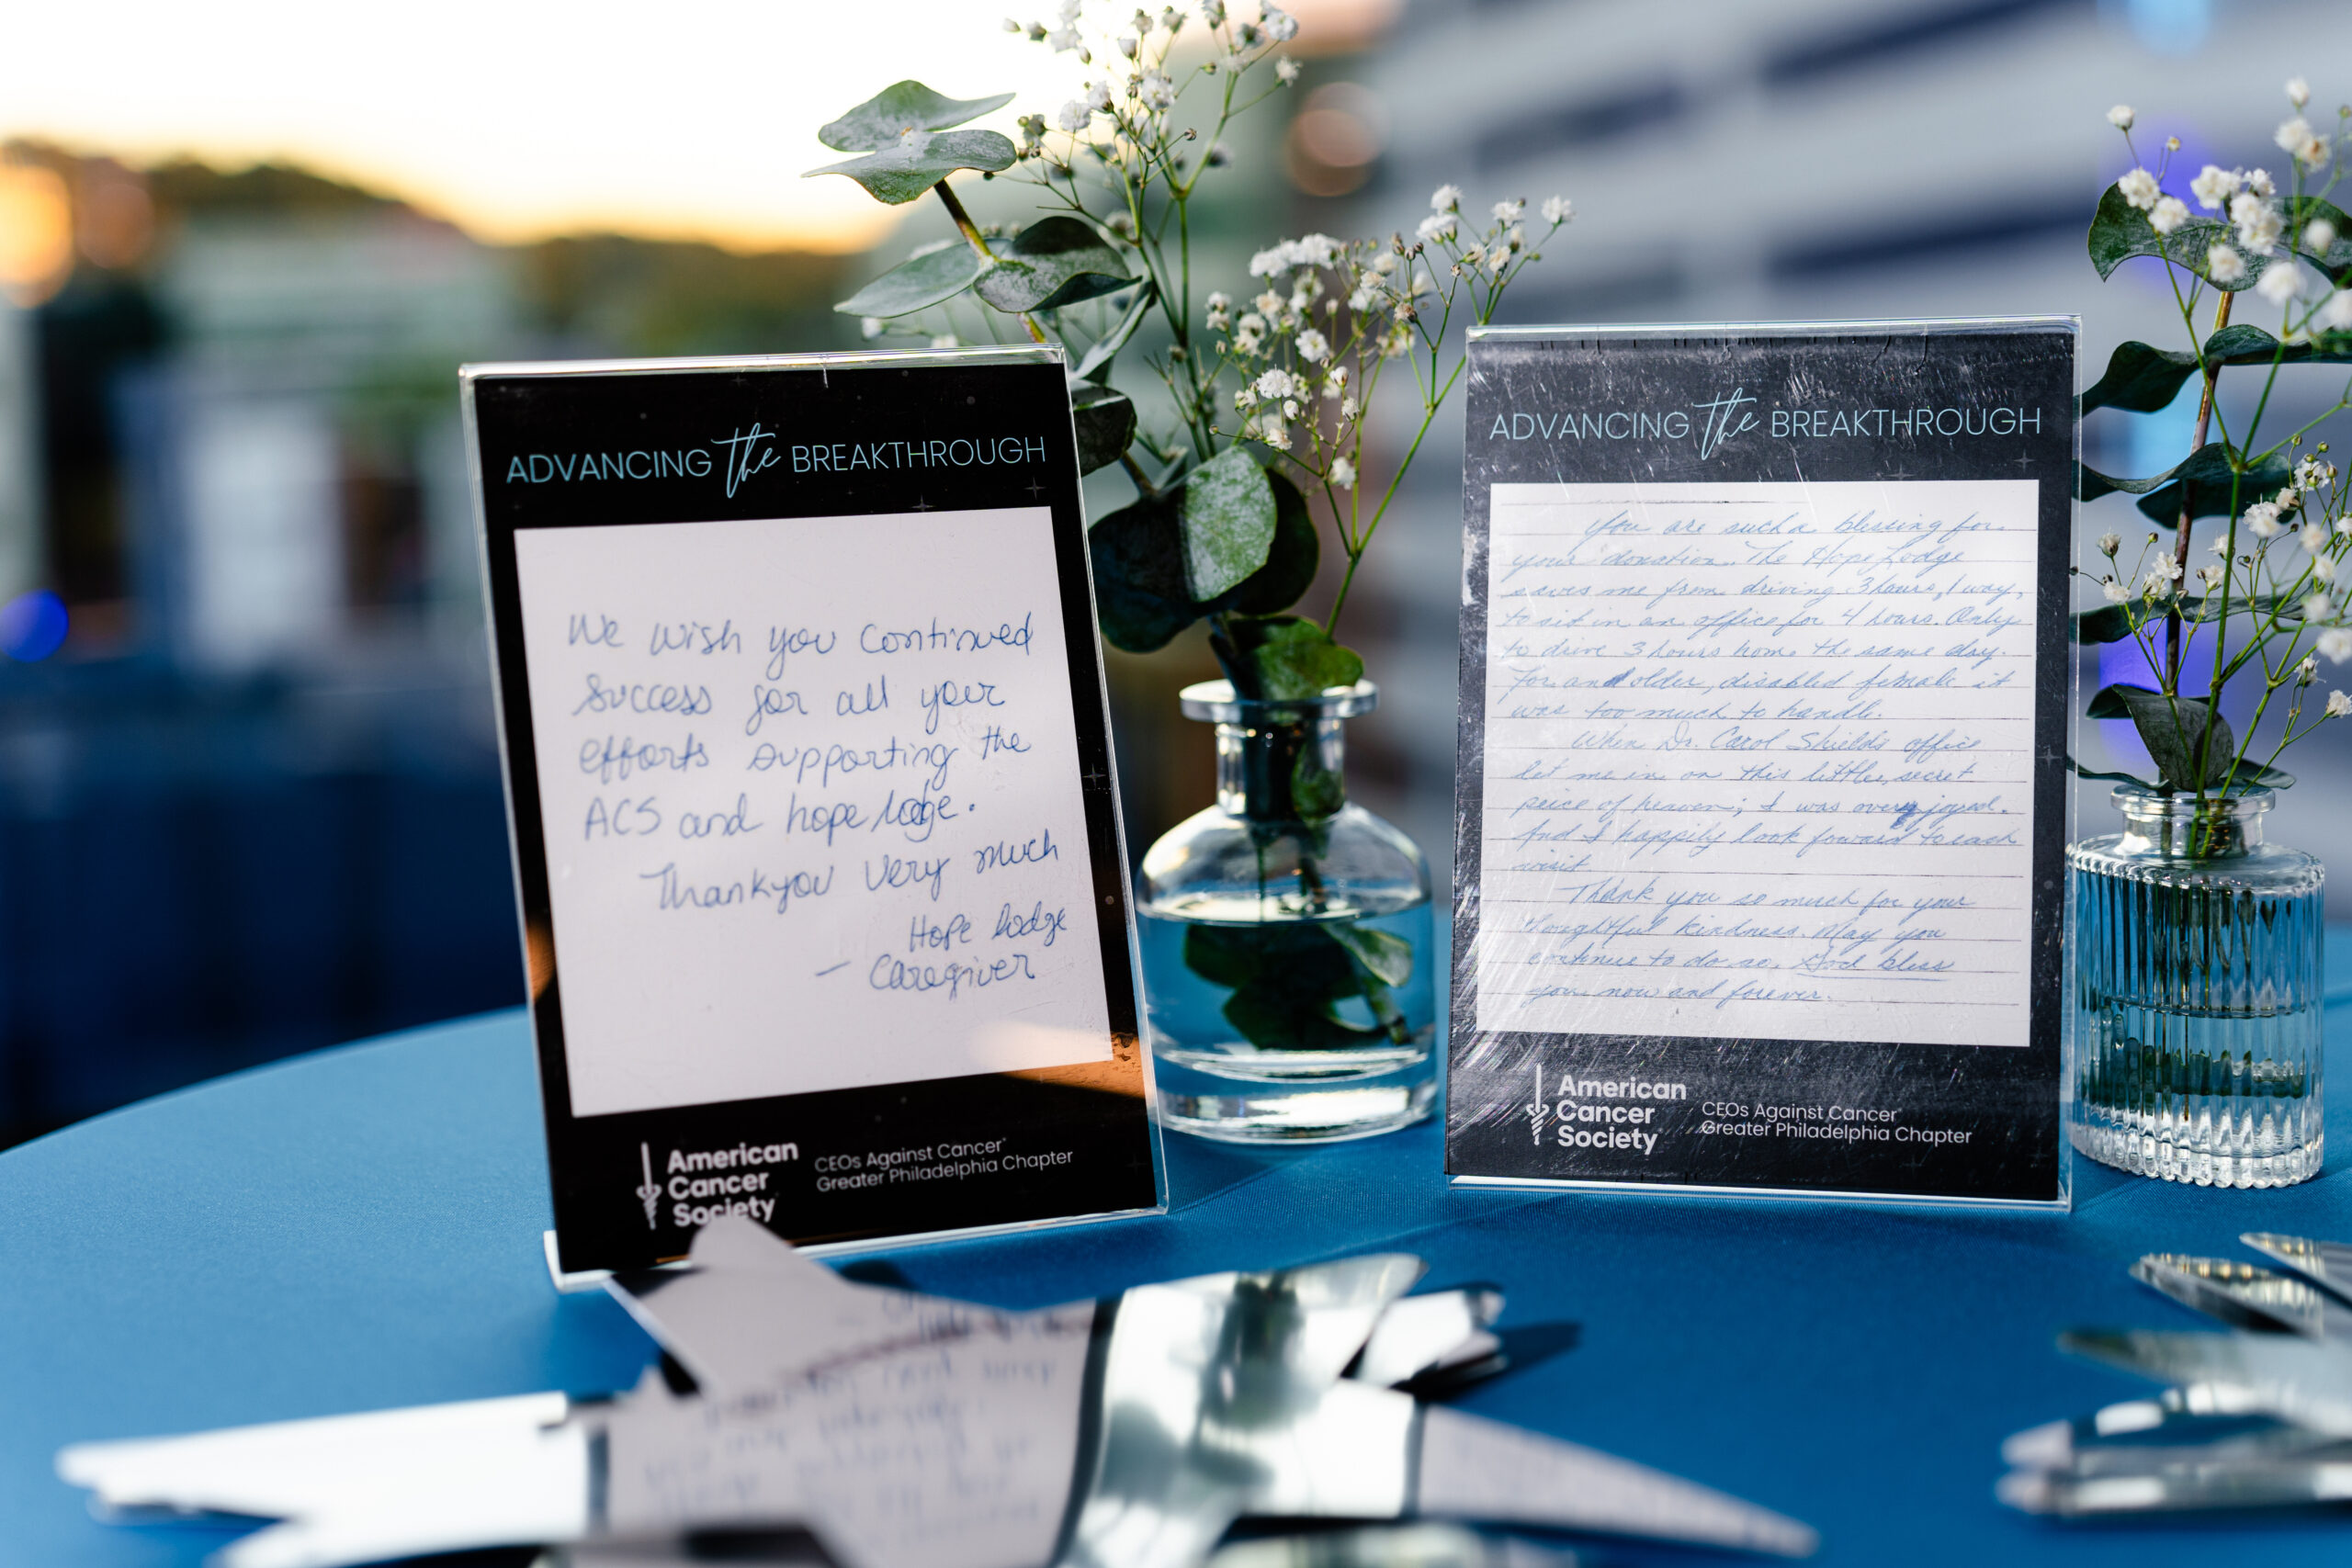 ADVANCING the BREAKTHROUGH
We wish you continued
success for all your
efforts supporting the
ACS and hope lodge.
Thankyou Very much
Hope lodge
- Caregiver
American
Cancer
Society
CEOs Against Cancer
Greater Philadelphia Chapter
ADVANCING the BREAKTHROUGH
You are such a blessing for
your donation. The Hope Lodge
saves me from driving 3 hours, 1 way,
to sit in an office for 4 hours. Only
to drive 3 hours home the same day.
For and older, disabled female it
was too much to handle.
When Dr. Carol Shields office
let me in on this little, secret
peice of heaven; I was over joyed.
And I happily look foward to each
visit
Thank you so much for your
thoughtful kindness. May you
continue to do so. God bless
you now and forever.
American
Cancer
Society
CEOs Against Cancer
Greater Philadelphia Chapter